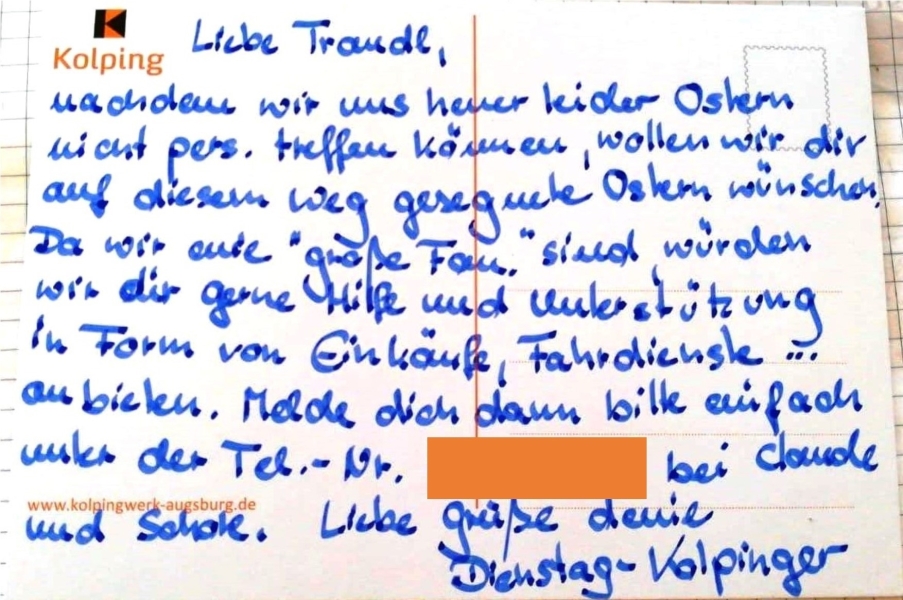 Kolping
Liebe Traudl,
nachdem wir uns heuer leider Ostern
nicht pers. treffen können, wollen wir dir
auf diesem Weg gesegnete Ostern wünschen.
Da wir eine "große Fam." sind, würden
wir dir gerne Hilfe und Unterstützung
in Form von Einkäufe, Fahrdienste ...
anbieten. Melde dich dann bitte einfach
unter der Tel.-Nr. bei Claude
www.kolpingwerk-augsburg.de
und Liebe grüße deine
Dienstag-Kolpinger